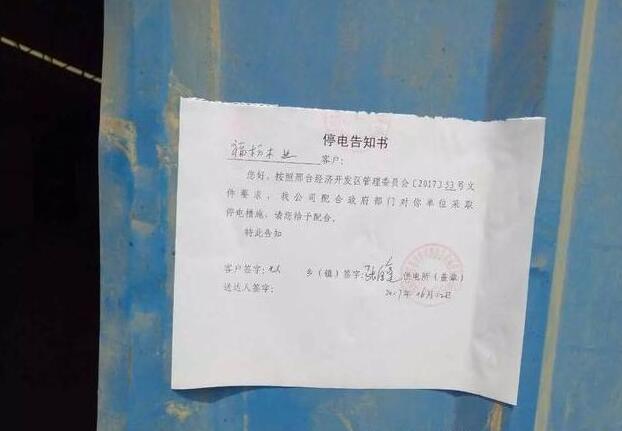 停电告知书
福杨木业 客户：
您好，按照邢台经济开发区管理委员会［2017］53号文
件要求，我公司配合政府部门对你单位采取
停电措施，请您给予配合。
特此告知
客户签字：无人 乡（镇）签字： 供电所（盖章）
送达人签字： 2017年10月12日